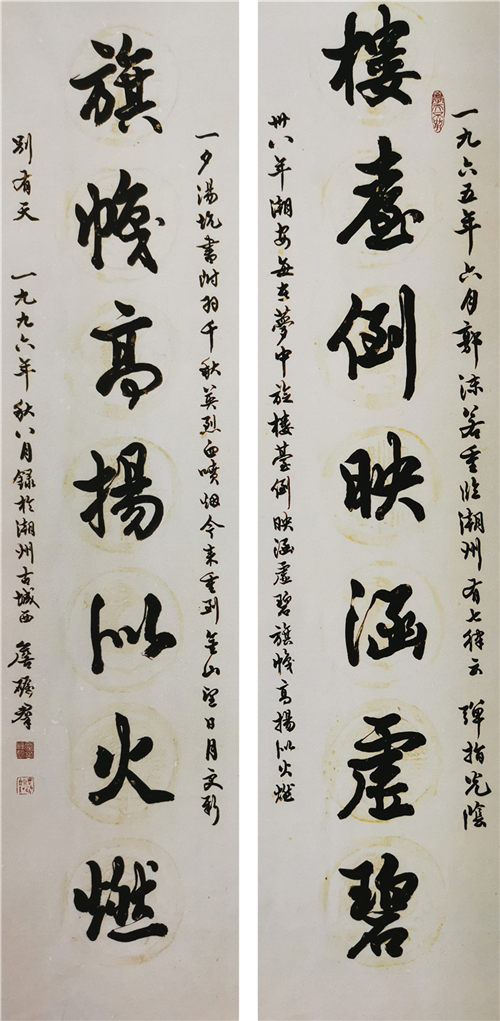 一九六五年六月郭沫若重臨潮州有七律云 彈指光陰
樓臺倒映涵虛碧
卅八年潮安每在夢中旋樓臺倒映涵虛碧旗幟高揚似火燃
一夕湯坑書附羽千秋英烈血噴烟今来重到金山望日月更新
旗幟高揚似火燃
別有天 一九九六年秋八月録於潮州古城西